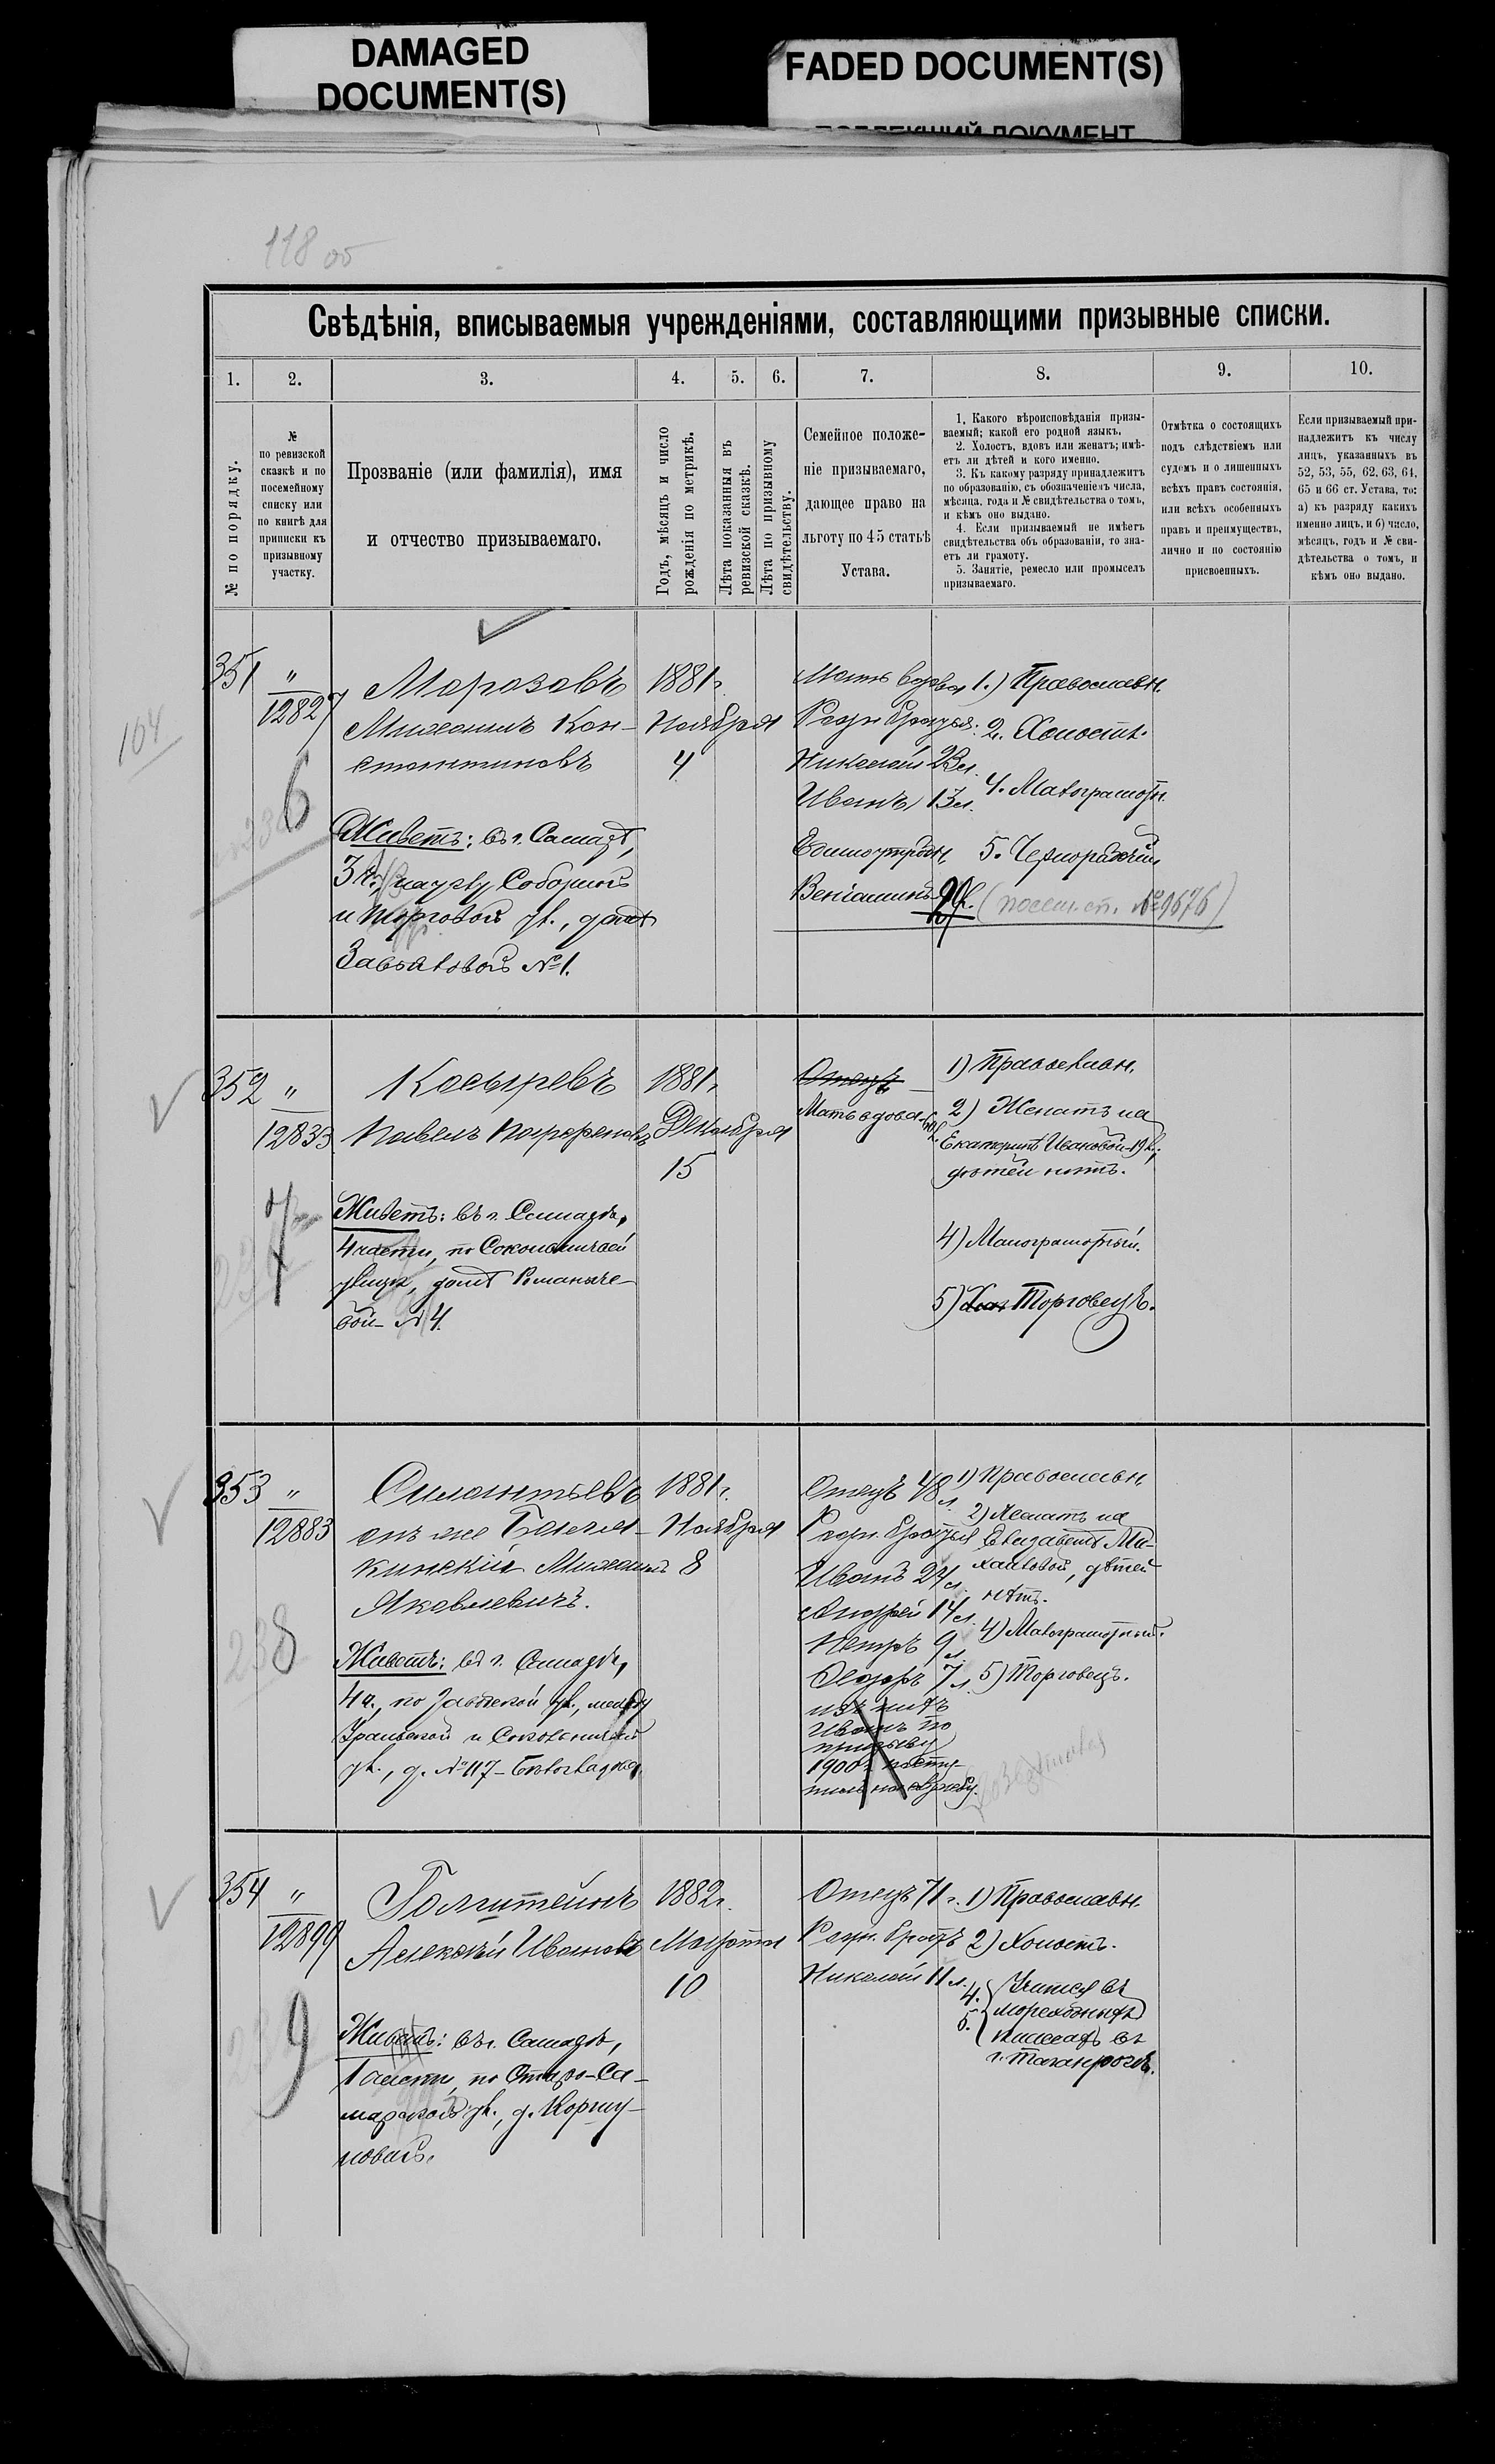 DAMAGED
DOCUMENT(S)
FADED DOCUMENT(S)
118 об
Свѣдѣнія, вписываемыя учрежденіями, составляющими призывные списки.
1.
2.
3.
4.
5.
6.
7.
8.
9.
10.
№ по порядку.
№
по ревизской
сказкѣ и по
посемейному
списку или
по книгѣ для
приписки къ
призывному
участку.
Прозваніе (или фамилія), имя
и отчество призываемаго.
Годъ, мѣсяцъ и число
рожденія по метрикѣ.
Лѣта показанныя въ
ревизской сказкѣ.
Лѣта по призывному
свидѣтельству.
Семейное положе-
ніе призываемаго,
дающее право на
льготу по 45 статьѣ
Устава.
1. Какого вѣроисповѣданія призы-
ваемый; какой его родной языкъ.
2. Холостъ, вдовъ или женатъ; имѣ-
етъ ли дѣтей и кого именно.
3. Къ какому разряду принадлежитъ
по образованію, съ обозначеніемъ числа,
мѣсяца, года и № свидѣтельства о томъ,
и кѣмъ оно выдано.
4. Если призываемый не имѣетъ
свидѣтельства объ образованіи, то зна-
етъ ли грамоту.
5. Занятіе, ремесло или промыселъ
призываемаго.
Отмѣтка о состоящихъ
подъ слѣдствіемъ или
судомъ и о лишенныхъ
всѣхъ правъ состоянія,
или всѣхъ особенныхъ
правъ и преимуществъ,
лично и по состоянію
присвоенныхъ.
Если призываемый при-
надлежитъ къ числу
лицъ, указанныхъ въ
52, 53, 55, 62, 63, 64,
65 и 66 ст. Устава, то:
а) къ разряду какихъ
именно лицъ, и б) число,
мѣсяцъ, годъ и № сви-
дѣтельства о томъ, и
кѣмъ оно выдано.
104
351
"
12827
6
Морозовъ
Михаилъ Кон-
стантиновъ
Живетъ: въ г. Самарѣ,
3 ч., на углу Соборной
и Торговой ул., домъ
№ 1.
1881 г.
Ноября
4
Мать вдова
Родн. братья:
Николай 23 л.
Иванъ 13 л.
Единоутробн.
Веніаминъ
1.) Православн.
2. Холостъ.
4. Малограмотн.
5. Чернорабочій
(посем. сп. № 1676)
352
"
12833
7
Косыревъ
Павелъ Парфеновъ
Живетъ: въ г. Самарѣ,
4 части, по Сокольничьей
улицѣ, домъ Романыче-
вой № 4.
1881 г.
Декабря
15
Отецъ
Мать вдова
1) Православн.
2) Женатъ на
Екатеринѣ Ивановой 19 л.,
дѣтей нѣтъ.
4) Малограмотный.
5) Торговецъ.
353
"
12883
238
Силантьевъ
онъ же
Михаилъ
Яковлевичъ.
Живетъ: въ г. Самарѣ,
4 ч., по Заводской ул., между
Уральской и Сокольничьей
ул., д. № 117
1881 г.
Ноября
8
Отецъ 48 л.
Родн. братья
Иванъ 24 л.
Андрей 14 л.
Петръ 9 л.
Ѳедоръ 7 л.
изъ нихъ
Иванъ по
призыву
1900 г. посту-
пилъ на службу.
1) Православн.
2) Женатъ на
Елизаветѣ Ми-
хайловой, дѣтей
нѣтъ.
4) Малограмотный.
5) Торговецъ.
354
"
12899
9
Голштейнъ
Алексѣй Ивановъ
Живетъ: въ г. Самарѣ,
1 части, по Старо-Са-
марской ул., д. Коршу-
новой.
1882 г.
Марта
10
Отецъ 71 г.
Родн. братъ
Николай 11 л.
1) Православн.
2) Холостъ.
4.
5.
Учится въ
мореходныхъ
классахъ въ
г. Таганрогѣ.